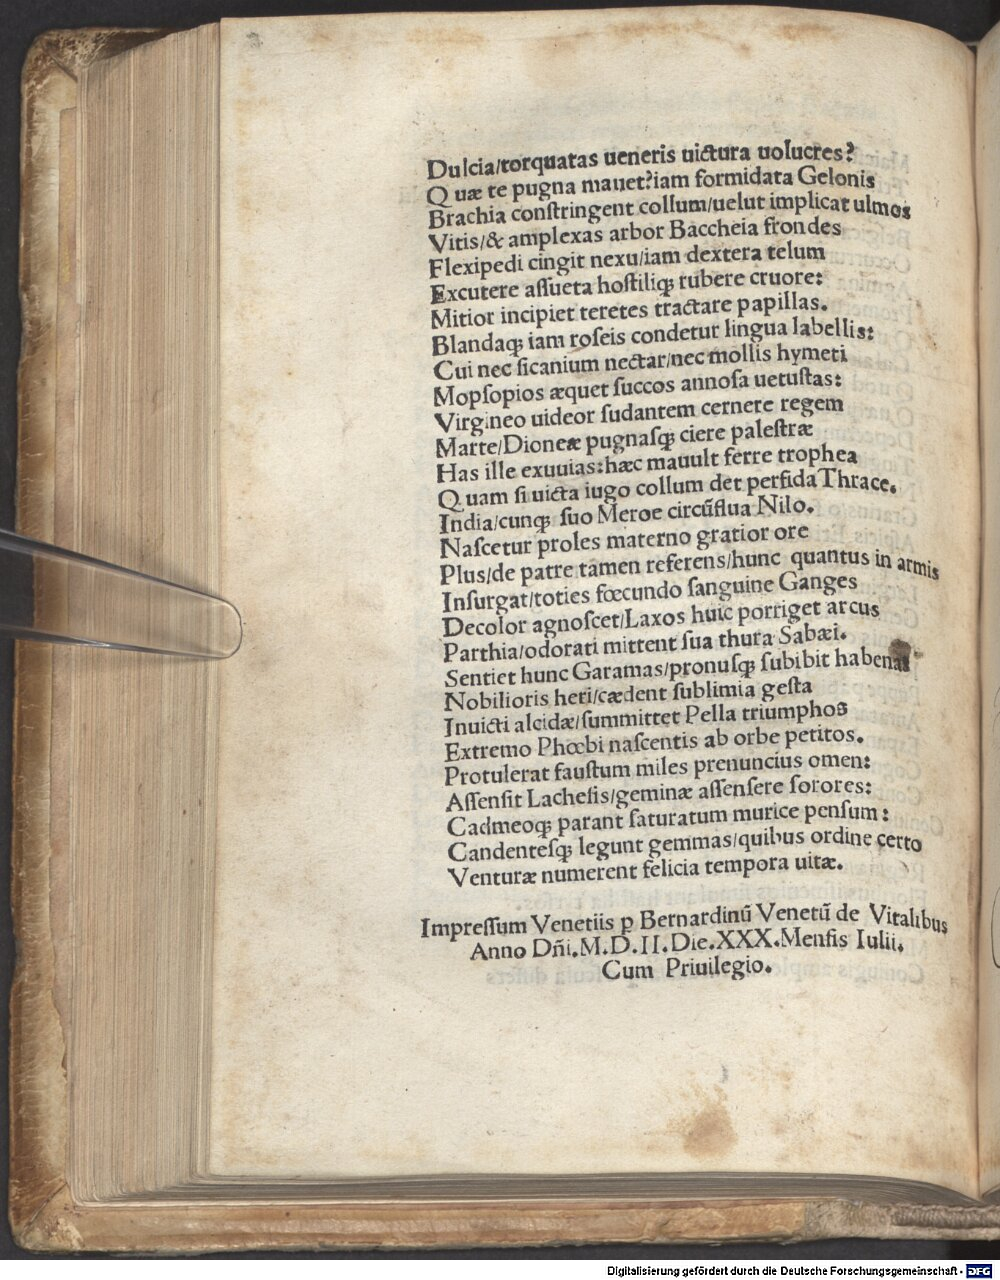 Dulcia/torquatas ueneris uictura uolucres?
Quæ te pugna mauet?iam formidata Gelonis
Brachia conſtringent collum/uelut implicat ulmos
Vitis/& amplexas arbor Baccheia frondes
Flexipedi cingit nexu/iam dextera telum
Excutere aſſueta hoſtiliqꝫ rubere cruore:
Mitior incipiet teretes tractare papillas.
Blandaqꝫ iam roſeis condetur lingua labellis:
Cui nec ſicanium nectar/nec mollis hymeti
Mopſopios æquet ſuccos annoſa uetuſtas:
Virgineo uideor ſudantem cernere regem
Marte/Dioneæ pugnaſqꝫ ciere paleſtræ
Has ille exuuias:hæc mauult ferre trophea
Quam ſi uicta iugo collum det perfida Thrace.
India/cunqꝫ ſuo Meroe circūflua Nilo.
Naſcetur proles materno gratior ore
Plus/de patre tamen referens/hunc quantus in armis
Inſurgat/toties fœcundo ſanguine Ganges
Decolor agnoſcet/Laxos huic porriget arcus
Parthia/odorati mittent ſua thura Sabæi.
Sentiet hunc Garamas/pronuſqꝫ ſubibit habenas
Nobilioris heri/cædent ſublimia geſta
Inuicti alcidæ/ſummittet Pella triumphos
Extremo Phœbi naſcentis ab orbe petitos.
Protulerat fauſtum miles prenuncius omen:
Aſſenſit Lacheſis/geminæ aſſenſere ſorores:
Cadmeoqꝫ parant ſaturatum murice penſum:
Candenteſqꝫ legunt gemmas/quibus ordine certo
Venturæ numerent felicia tempora uitæ.
Impreſſum Venetiis ꝑ Bernardinū Venetū de Vitalibus
Anno Dñi.M.D.II.Die.XXX.Menſis Iulii.
Cum Priuilegio.
Digitalisierung gefördert durch die Deutsche Forschungsgemeinschaft - DFG